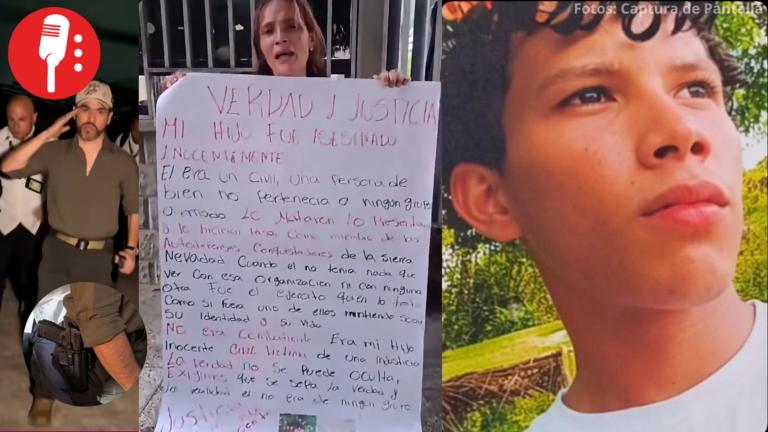 Fotos: Captura de Pantalla
VERDAD Y JUSTICIA
MI HIJO FUE ASESINADO
INOCENTEMENTE
El era un Civil, una persona de
bien no pertenecia a ningun grupo
armado Lo Mataron lo Presentaron
y lo hicieron Pasar Como miembro de las
Autodefensas Conquistadores de la sierra
Nevada Cuando el no tenia nada que
ver con esa organizacion ni con ninguna
otra Fue el ejercito quien lo
Como si fuera uno de ellos
su identidad y su vida
No era combatiente Era mi Hijo
Inocente Civil Victima de una injusticia
La verdad no se Puede oculta,
Exigimos que se sepa la verdad y
la realidad el no era de ningun grupo
Justicia